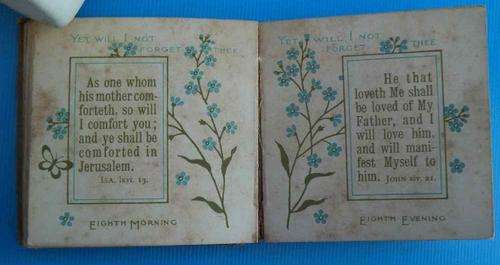 YET WILL I NOT
FORGET THEE
As one whom
his mother com-
forteth, so will
I comfort you;
and ye shall be
comforted in
Jerusalem.
ISA. lxvi. 13.
EIGHTH MORNING
YET WILL I NOT
FORGET THEE
He that
loveth Me shall
be loved of My
Father, and I
will love him,
and will mani-
fest Myself to
him. JOHN xiv. 21.
EIGHTH EVENING